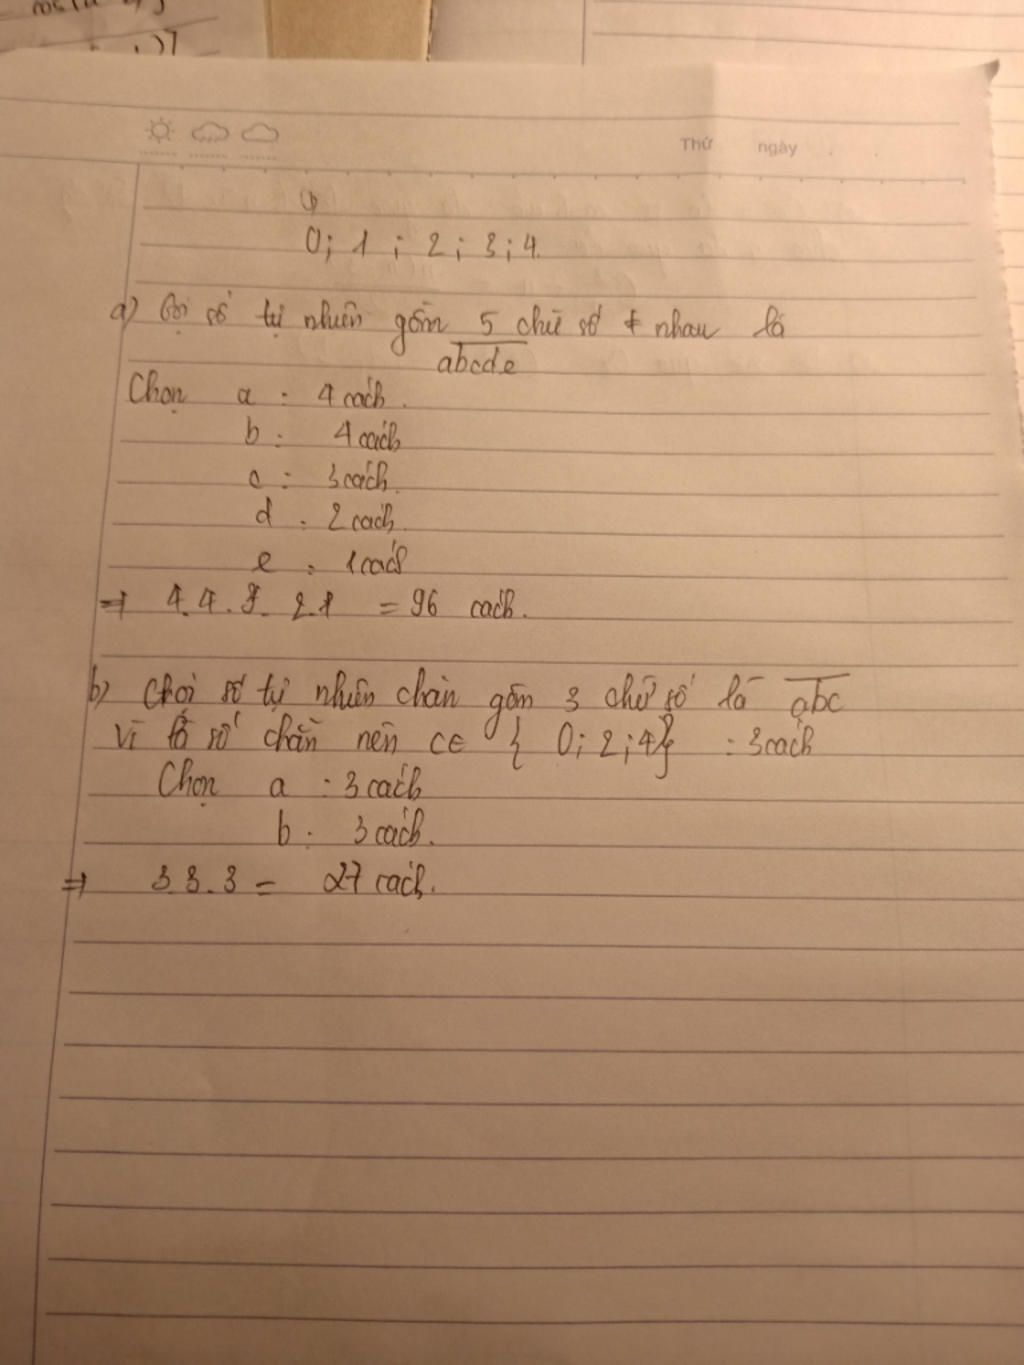 Thứ ngày
0; 1; 2; 3; 4.
a) Gọi số tự nhiên gồm 5 chữ số ≠ nhau là
abcde
Chọn a : 4 cách.
b : 4 cách
c : 3 cách.
d : 2 cách.
e : 1 cách
⇒ 4.4.3.2.1 = 96 cách.
b) Gọi số tự nhiên chẵn gồm 3 chữ số là abc
Vì là số chẵn nên c ∈ { 0; 2; 4} : 3 cách
Chọn a : 3 cách
b : 3 cách.
⇒ 3.3.3 = 27 cách.